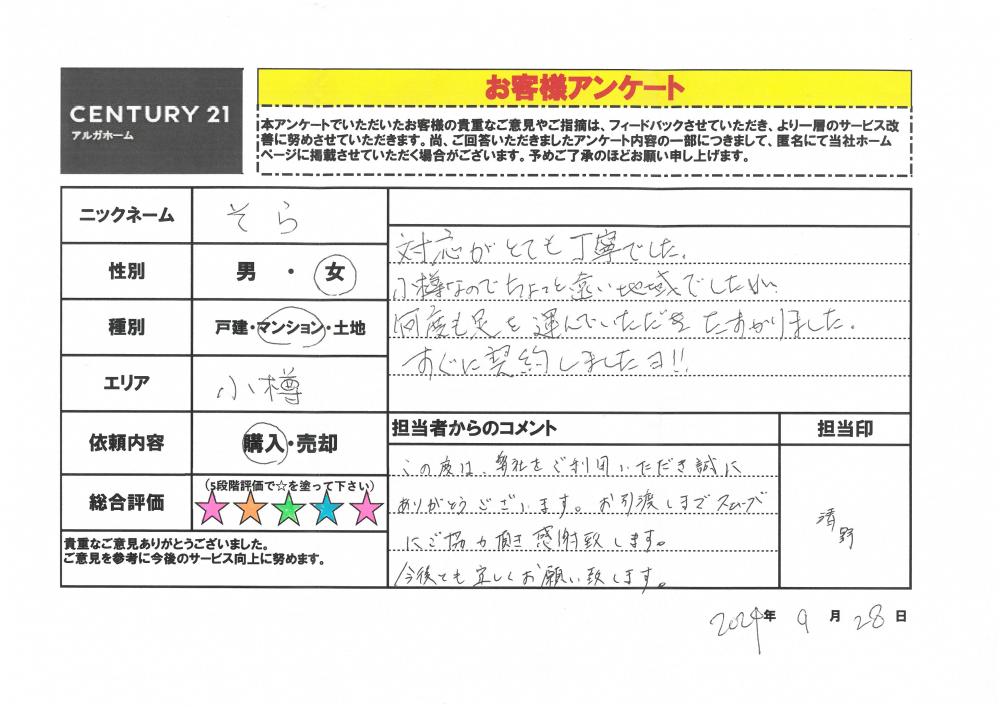 CENTURY 21
アルガホーム
お客様アンケート
本アンケートでいただいたお客様の貴重なご意見やご指摘は、フィードバックさせていただき、より一層のサービス改
善に努めさせていただきます。尚、ご回答いただきましたアンケート内容の一部につきまして、匿名にて当社ホーム
ページに掲載させていただく場合がございます。予めご了承のほどお願い申し上げます。
ニックネーム
そら
性別
男・女
種別
戸建・マンション・土地
エリア
小樽
依頼内容
購入・売却
総合評価
(5段階評価で☆を塗って下さい)
貴重なご意見ありがとうございました。
ご意見を参考に今後のサービス向上に努めます。
対応がとても丁寧でした。
小樽なのでちょっと遠い地域でしたが、
何度も足を運んでいただきたすかりました。
すぐに契約しましたヨ!!
担当者からのコメント
この度は、弊社をご利用いただき誠に
ありがとうございます。お引渡しまでスムーズ
にご協力頂き感謝致します。
今後とも宜しくお願い致します。
担当印
清野
2024年 9月 28日